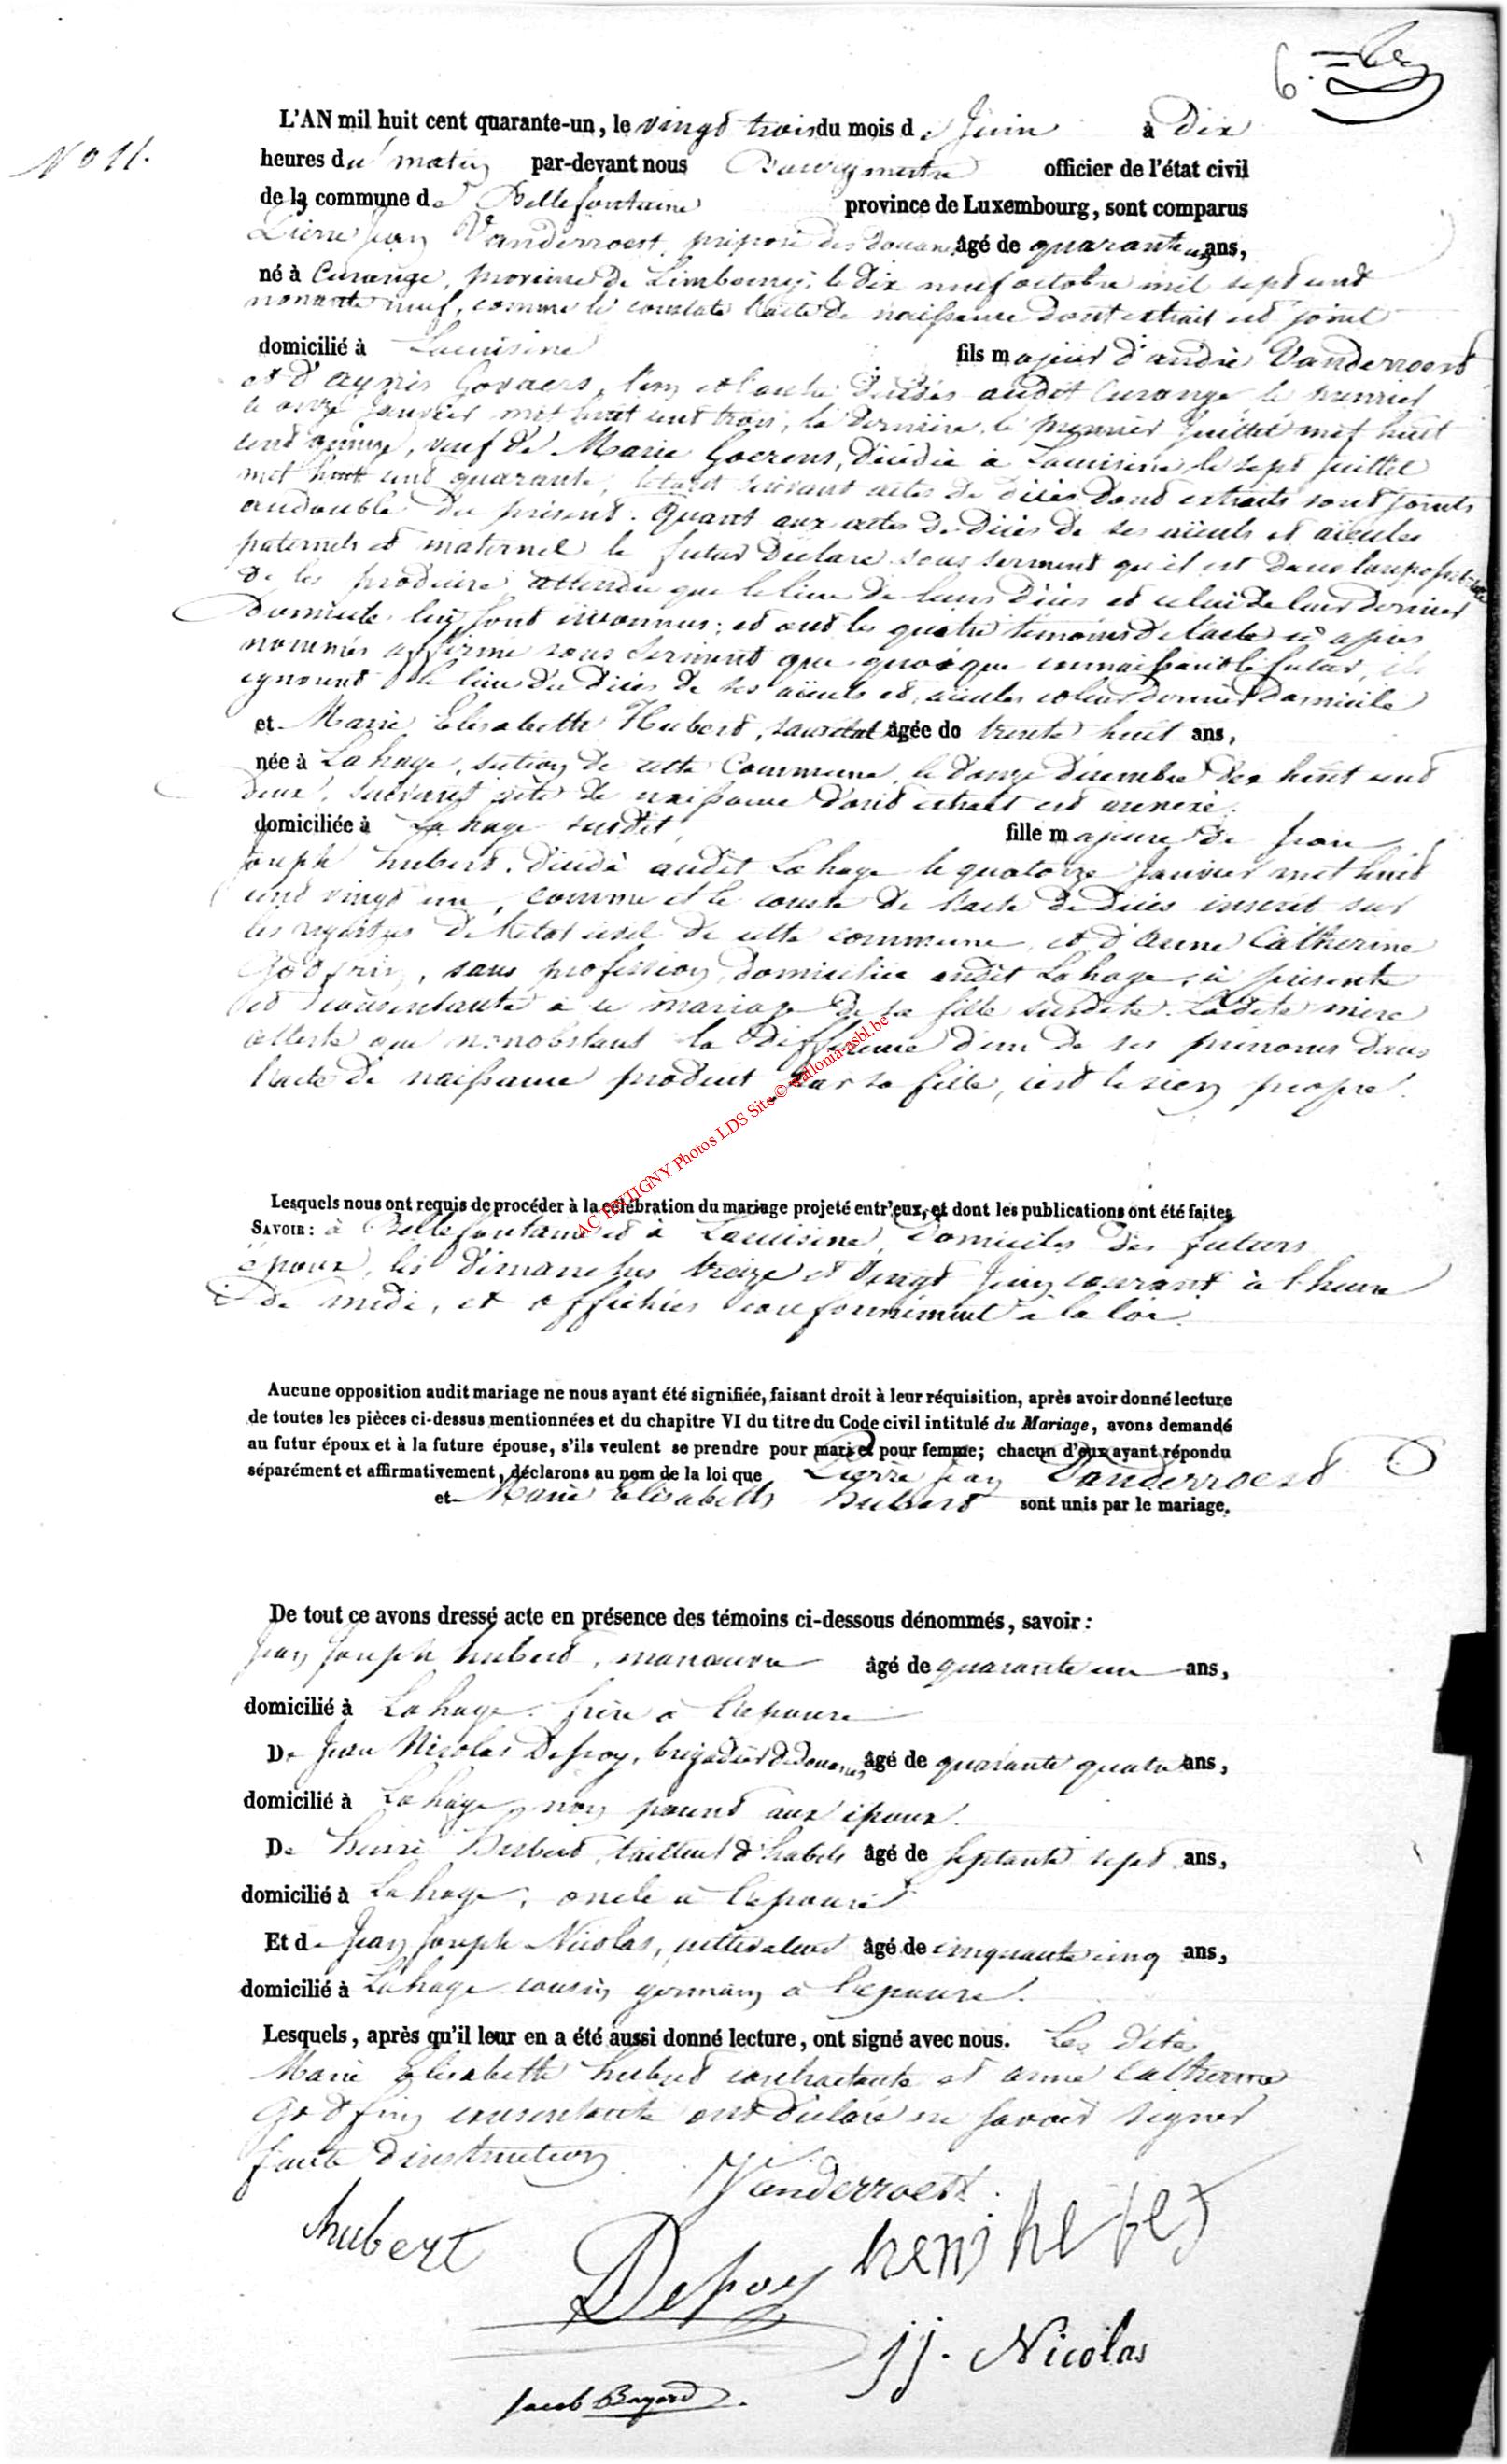 6.
N° 11.
L'AN mil huit cent quarante-un, le vingt trois du mois de Juin à dix
heures du matin par-devant nous Bourgmestre officier de l'état civil
de la commune de Bellefontaine province de Luxembourg, sont comparus
Pierre Jean Vanderroest, préposé des douanes âgé de quarante un ans,
né à Curange, province de Limbourg, le dix neuf octobre mil sept cent
nonante neuf, comme le constate l'acte de naissance dont extrait est joint
domicilié à Lacuisine fils majeur d'andré Vanderroest
et d'agnès Govaers, l'un et l'autre décédés audit Curange, le premier
le onze Janvier mil huit cent trois, la dernière, le premier Juillet mil huit
cent quinze, veuf de Marie Goerens, décédée à Lacuisine le sept Juillet
mil huit cent quarante, le tout suivant actes de décès dont extraits sont joints
au double du présent. Quant aux actes de décès de ses aïeuls et aïeules
paternels et maternels le futur déclare sous serment qu'il est dans l'impossibilité
de les produire attendu que le lieu de leurs décès et celui de leur dernier
domicile lui sont inconnus; et ont les quatre témoins de l'acte ci après
nommés affirmé sous serment que quoique connaissant le futur, ils
ignorent le lieu du décès de ses aïeuls et aïeules et leur dernier domicile
et Marie Elisabeth Hubert, sans état âgée de trente huit ans,
née à Lahage, section de cette Commune, le douze décembre dix huit cent
deux, suivant acte de naissance dont extrait est annexé.
domiciliée à Lahage susdit, fille majeure de Jean
Joseph hubert, décédé audit Lahage le quatorze Janvier mil huit
cent vingt un, comme et le conste de l'acte de décès inscrit sur
les registres de l'état civil de cette commune, et d'Anne Catherine
Godfrin, sans profession, domiciliée audit Lahage, ci présente
et consentante à ce mariage de sa fille susdite. Ladite mère
atteste que nonobstant la différence d'un de ses prénoms dans
l'acte de naissance produit par sa fille, c'est le sien propre.
AC TINTIGNY Photos LDS Site © wallonia-asbl.be
Lesquels nous ont requis de procéder à la célébration du mariage projeté entr'eux, et dont les publications ont été faites,
SAVOIR: à Bellefontaine et à Lacuisine, domiciles des futurs
époux, les dimanches treize et vingt Juin courant à l'heure
de midi, et affichées conformément à la loi.
Aucune opposition audit mariage ne nous ayant été signifiée, faisant droit à leur réquisition, après avoir donné lecture
de toutes les pièces ci-dessus mentionnées et du chapitre VI du titre du Code civil intitulé du Mariage, avons demandé
au futur époux et à la future épouse, s'ils veulent se prendre pour mari et pour femme; chacun d'eux ayant répondu
séparément et affirmativement, déclarons au nom de la loi que Pierre Jean Vanderroest
et Marie Elisabeth hubert sont unis par le mariage.
De tout ce avons dressé acte en présence des témoins ci-dessous dénommés, savoir:
Jean Joseph hubert, manœuvre âgé de quarante un ans,
domicilié à Lahage frère à l'épouse
De Jean Nicolas Depoy, brigadier de douanes âgé de quarante quatre ans,
domicilié à Lahage non parent aux époux.
De henri Hubert, tailleur d'habits âgé de septante sept ans,
domicilié à Lahage, oncle à l'épouse
Et de Jean Joseph Nicolas, cultivateur âgé de cinquante cinq ans,
domicilié à Lahage cousin germain à l'épouse.
Lesquels, après qu'il leur en a été aussi donné lecture, ont signé avec nous. Les dites
Marie Elisabeth hubert contractante et anne Catherine
Godfrin consentante ont déclaré ne savoir signer
faute d'instruction
Vanderroest.
hubert
Depoy
jj. Nicolas
Jacob Bayard